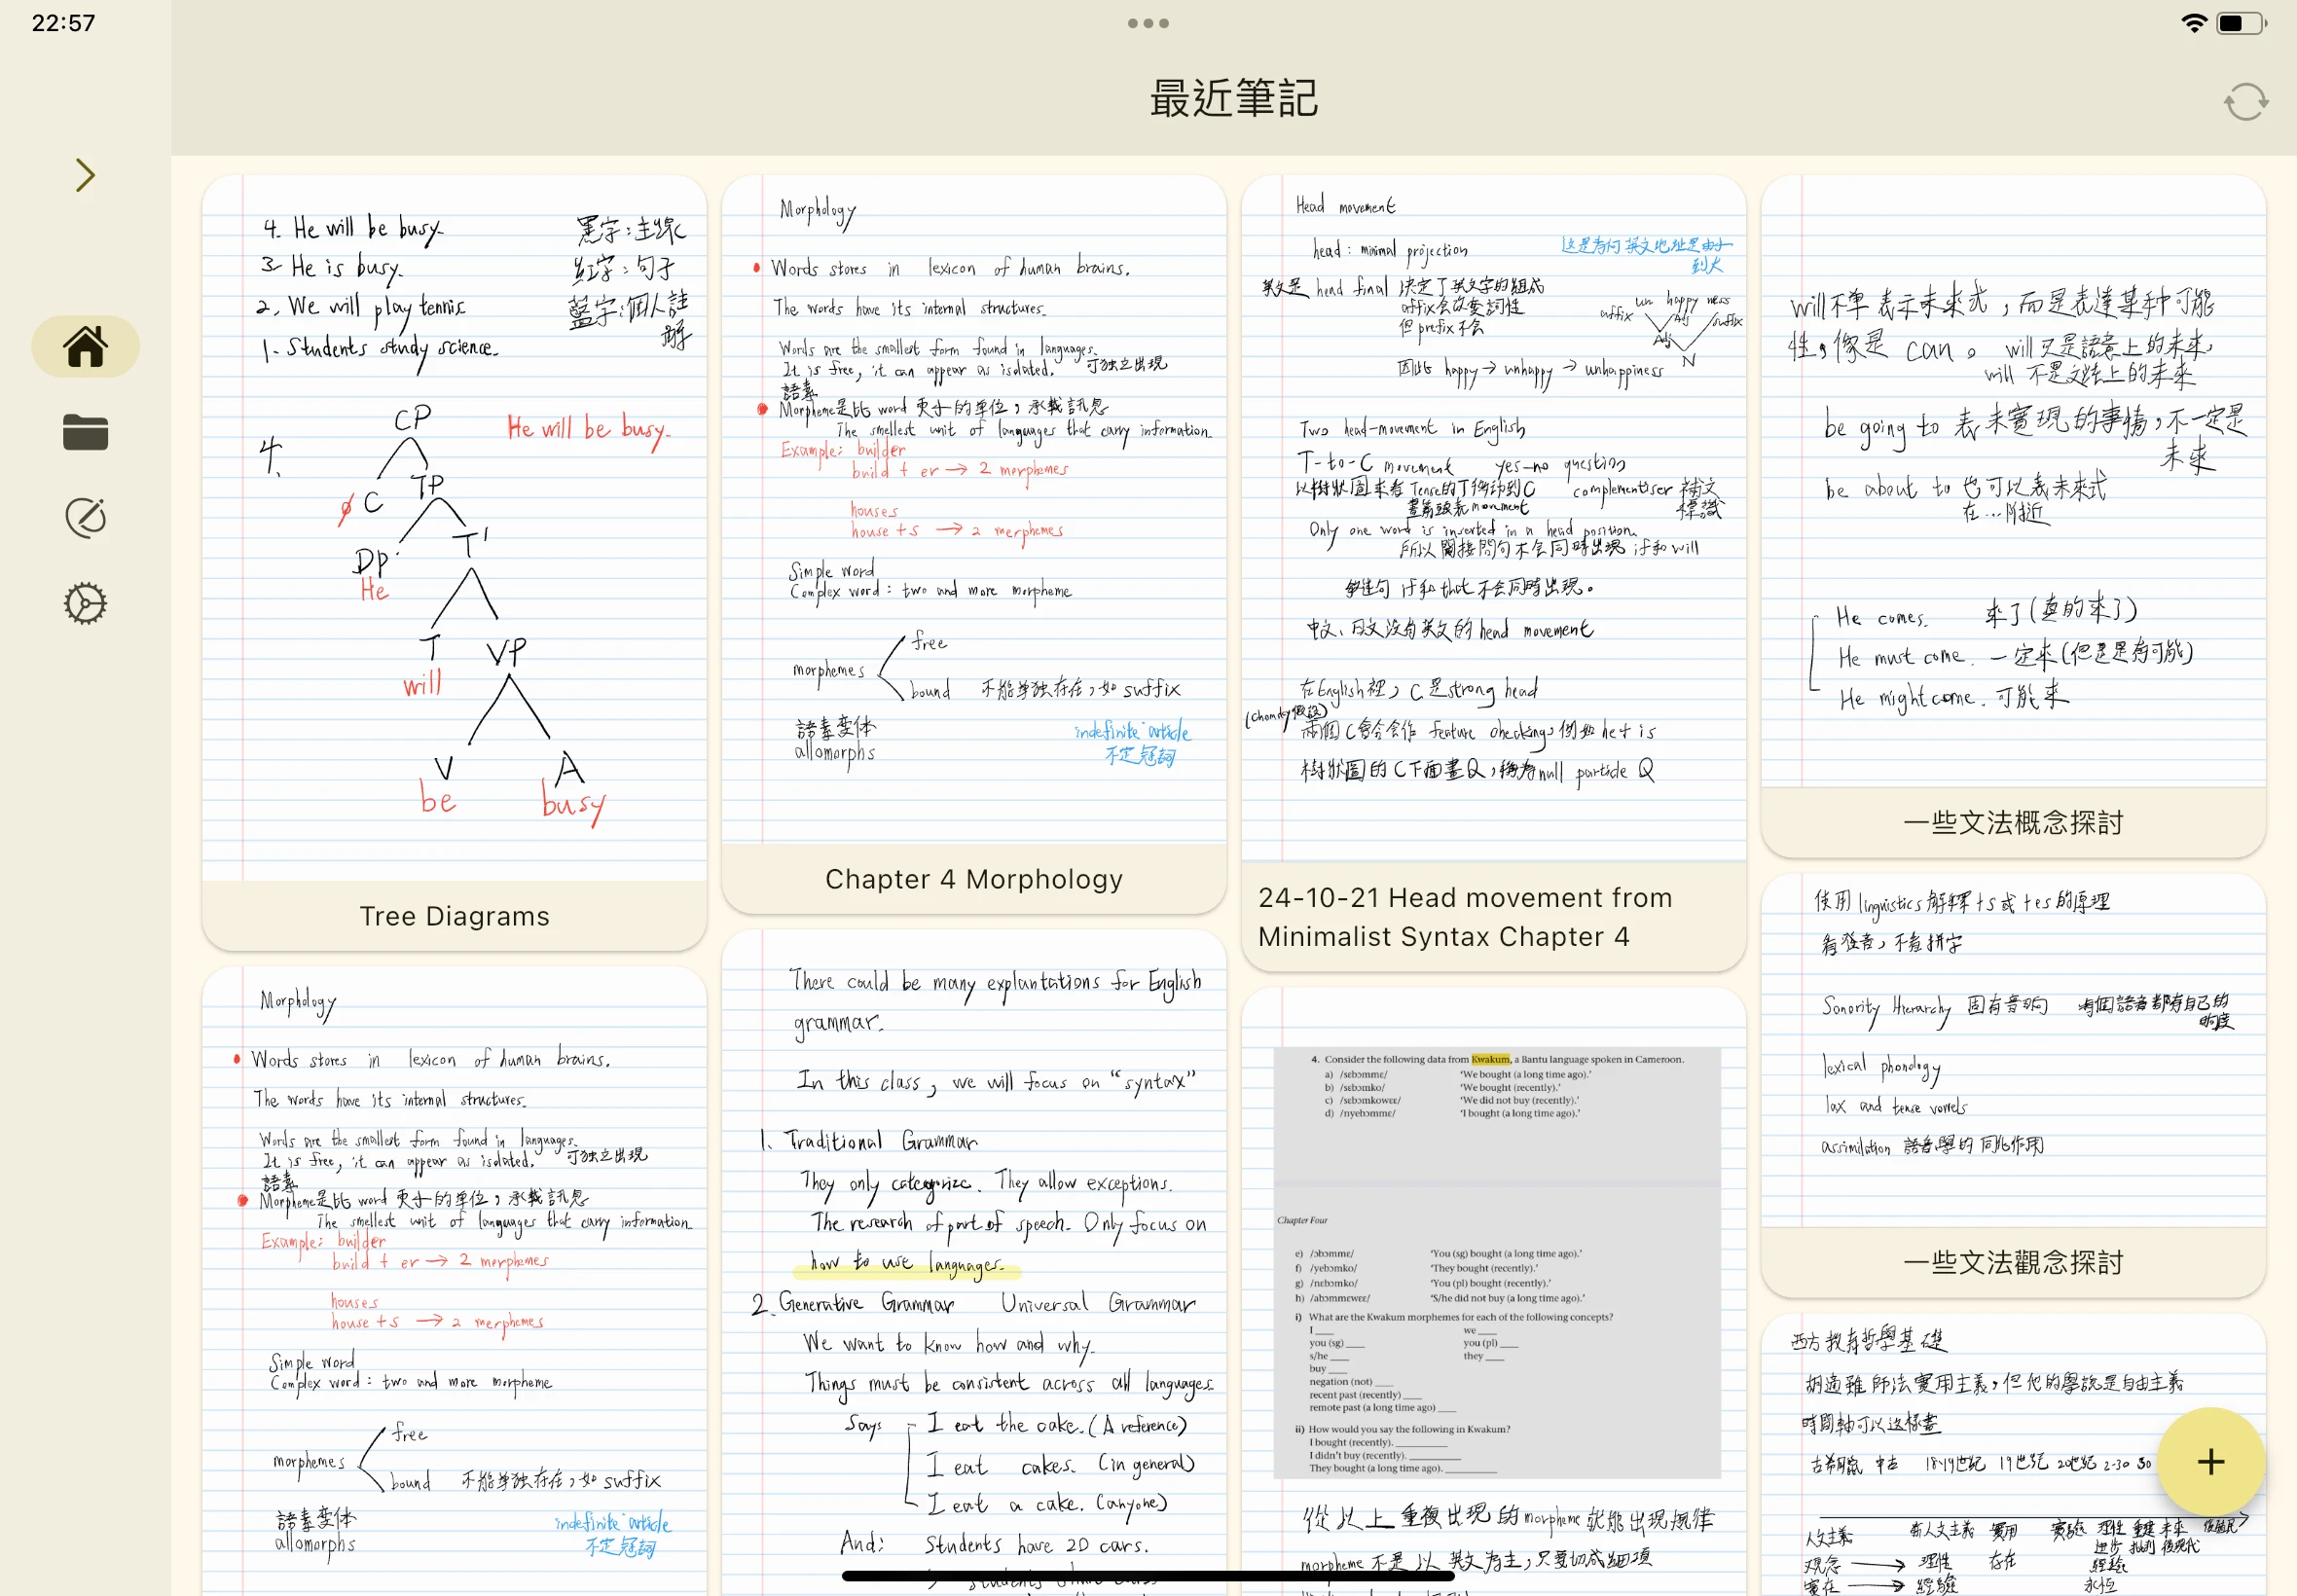 22:57
最近筆記
4. He will be busy.
3. He is busy.
2. We will play tennis
1. Students study science.
黑字：主線
紅字：句子
藍字：個人註解
4.
He will be busy.
CP
∅ C TP
DP T'
He
T VP
will
V A
be busy
Tree Diagrams
Morphology
Words stores in lexicon of human brains.
The words have its internal structures.
Words are the smallest form found in languages.
It is free, it can appear as isolated. 可独立出現
語素
Morpheme是比 word 更小的单位，承載訊息
The smallest unit of languages that carry information.
Example: builder
build + er → 2 morphemes
houses
house + s → 2 morphemes
Simple word
Complex word: two and more morpheme
morphemes
free
bound 不能单独存在，如 suffix
語素变体
allomorphs
indefinite article
不定冠詞
Chapter 4 Morphology
Head movement
head: minimal projection
这是為何英文地址是由小到大
英文是 head final 決定了英文字的組成
affix会改变詞性
但 prefix 不会
un happy ness
affix Adj suffix
Adj
N
因此 happy → unhappy → unhappiness
Two head-movement in English
T-to-C movement yes-no question
以樹狀圖來看 Tense的T移动到C complementiser 補文標識
畫箭頭表 movement
Only one word is inserted in a head position.
所以間接問句不会同時出現 if 和 will
if 和 that 不会同時出現。
中文、日文没有英文的 head movement
在English裡，C是strong head
(Chomsky假設)
兩個C會合作 feature checking，例如 he+ is
樹狀圖的C下面畫Q，稱為null particle Q
24-10-21 Head movement from
Minimalist Syntax Chapter 4
will不单表示未來式，而是表達某种可能
性，像是 can。will只是語意上的未來，
will 不是文法上的未來
be going to 表未實現的事情，不一定是
未來
be about to 也可以表未來式
在…附近
He comes. 來了(真的來了)
He must come. 一定來(但還是有可能)
He might come. 可能來
一些文法概念探討
Morphology
Words stores in lexicon of human brains.
The words have its internal structures.
Words are the smallest form found in languages.
It is free, it can appear as isolated. 可独立出現
語素
Morpheme是比 word 更小的单位，承載訊息
The smallest unit of languages that carry information.
Example: builder
build + er → 2 morphemes
houses
house + s → 2 morphemes
Simple word
Complex word: two and more morpheme
morphemes
free
bound 不能单独存在，如 suffix
語素变体
allomorphs
indefinite article
不定冠詞
There could be many explantations for English
grammar.
In this class, we will focus on “syntax”
1. Traditional Grammar
They only categorize. They allow exceptions.
The research of part of speech. Only focus on
how to use languages.
2. Generative Grammar Universal Grammar
We want to know how and why.
Things must be consistent across all languages.
Says I eat the cake. (A reference)
I eat cakes. (in general)
I eat a cake. (anyone)
And: Students have 20 cars.
4. Consider the following data from Kwakum, a Bantu language spoken in Cameroon.
a) /sebɔmmɛ/ ‘We bought (a long time ago).’
b) /sebɔmko/ ‘We bought (recently).’
c) /sebɔmkowɛɛ/ ‘We did not buy (recently).’
d) /nyebɔmmɛ/ ‘I bought (a long time ago).’
Chapter Four
e) /ɔbɔmmɛ/ ‘You (sg) bought (a long time ago).’
f) /yebɔmko/ ‘They bought (recently).’
g) /nɛbɔmko/ ‘You (pl) bought (recently).’
h) /abɔmmɛwɛɛ/ ‘S/he did not buy (a long time ago).’
i) What are the Kwakum morphemes for each of the following concepts?
I ____ we ____
you (sg) ____ you (pl) ____
s/he ____ they ____
buy ____
negation (not) ____
recent past (recently) ____
remote past (a long time ago) ____
ii) How would you say the following in Kwakum?
I bought (recently). ____
I didn't buy (recently). ____
They bought (a long time ago). ____
從以上重複出現的morpheme就能出現規律
morpheme 不是以英文为主，只要切成細項
使用 linguistics 解釋 +s 或 +es 的原理
看發音，不看拼字
Sonority Hierarchy 固有音响 每個語音都有自己的
响度
lexical phonology
lax and tense vowels
assimilation 語音學的同化作用
一些文法觀念探討
西方教育哲學基礎
胡適雖師法實用主義，但他的學說是自由主義
時間軸可以这樣畫
古希臘 中古 18-19世紀 19世紀 20世紀 2-30 50
人文主義 新人文主義 實用 實驗 理性 重建 未來 後殖民
进步 批判 後現代
观念 → 理性 存在 經驗
實在 → 經驗 永恆